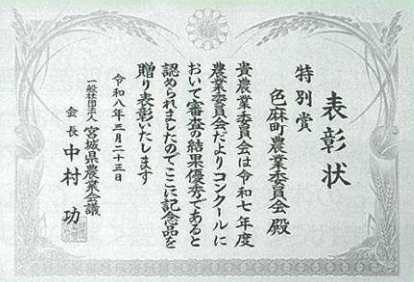 表彰状
特別賞
色麻町農業委員会殿
貴農業委員会は令和七年度
農業委員会だよりコンクールに
おいて審査の結果優秀であると
認められましたのでここに記念品を
贈り表彰いたします
令和八年三月二十三日
一般社団法人 宮城県農業会議
会長 中村 功